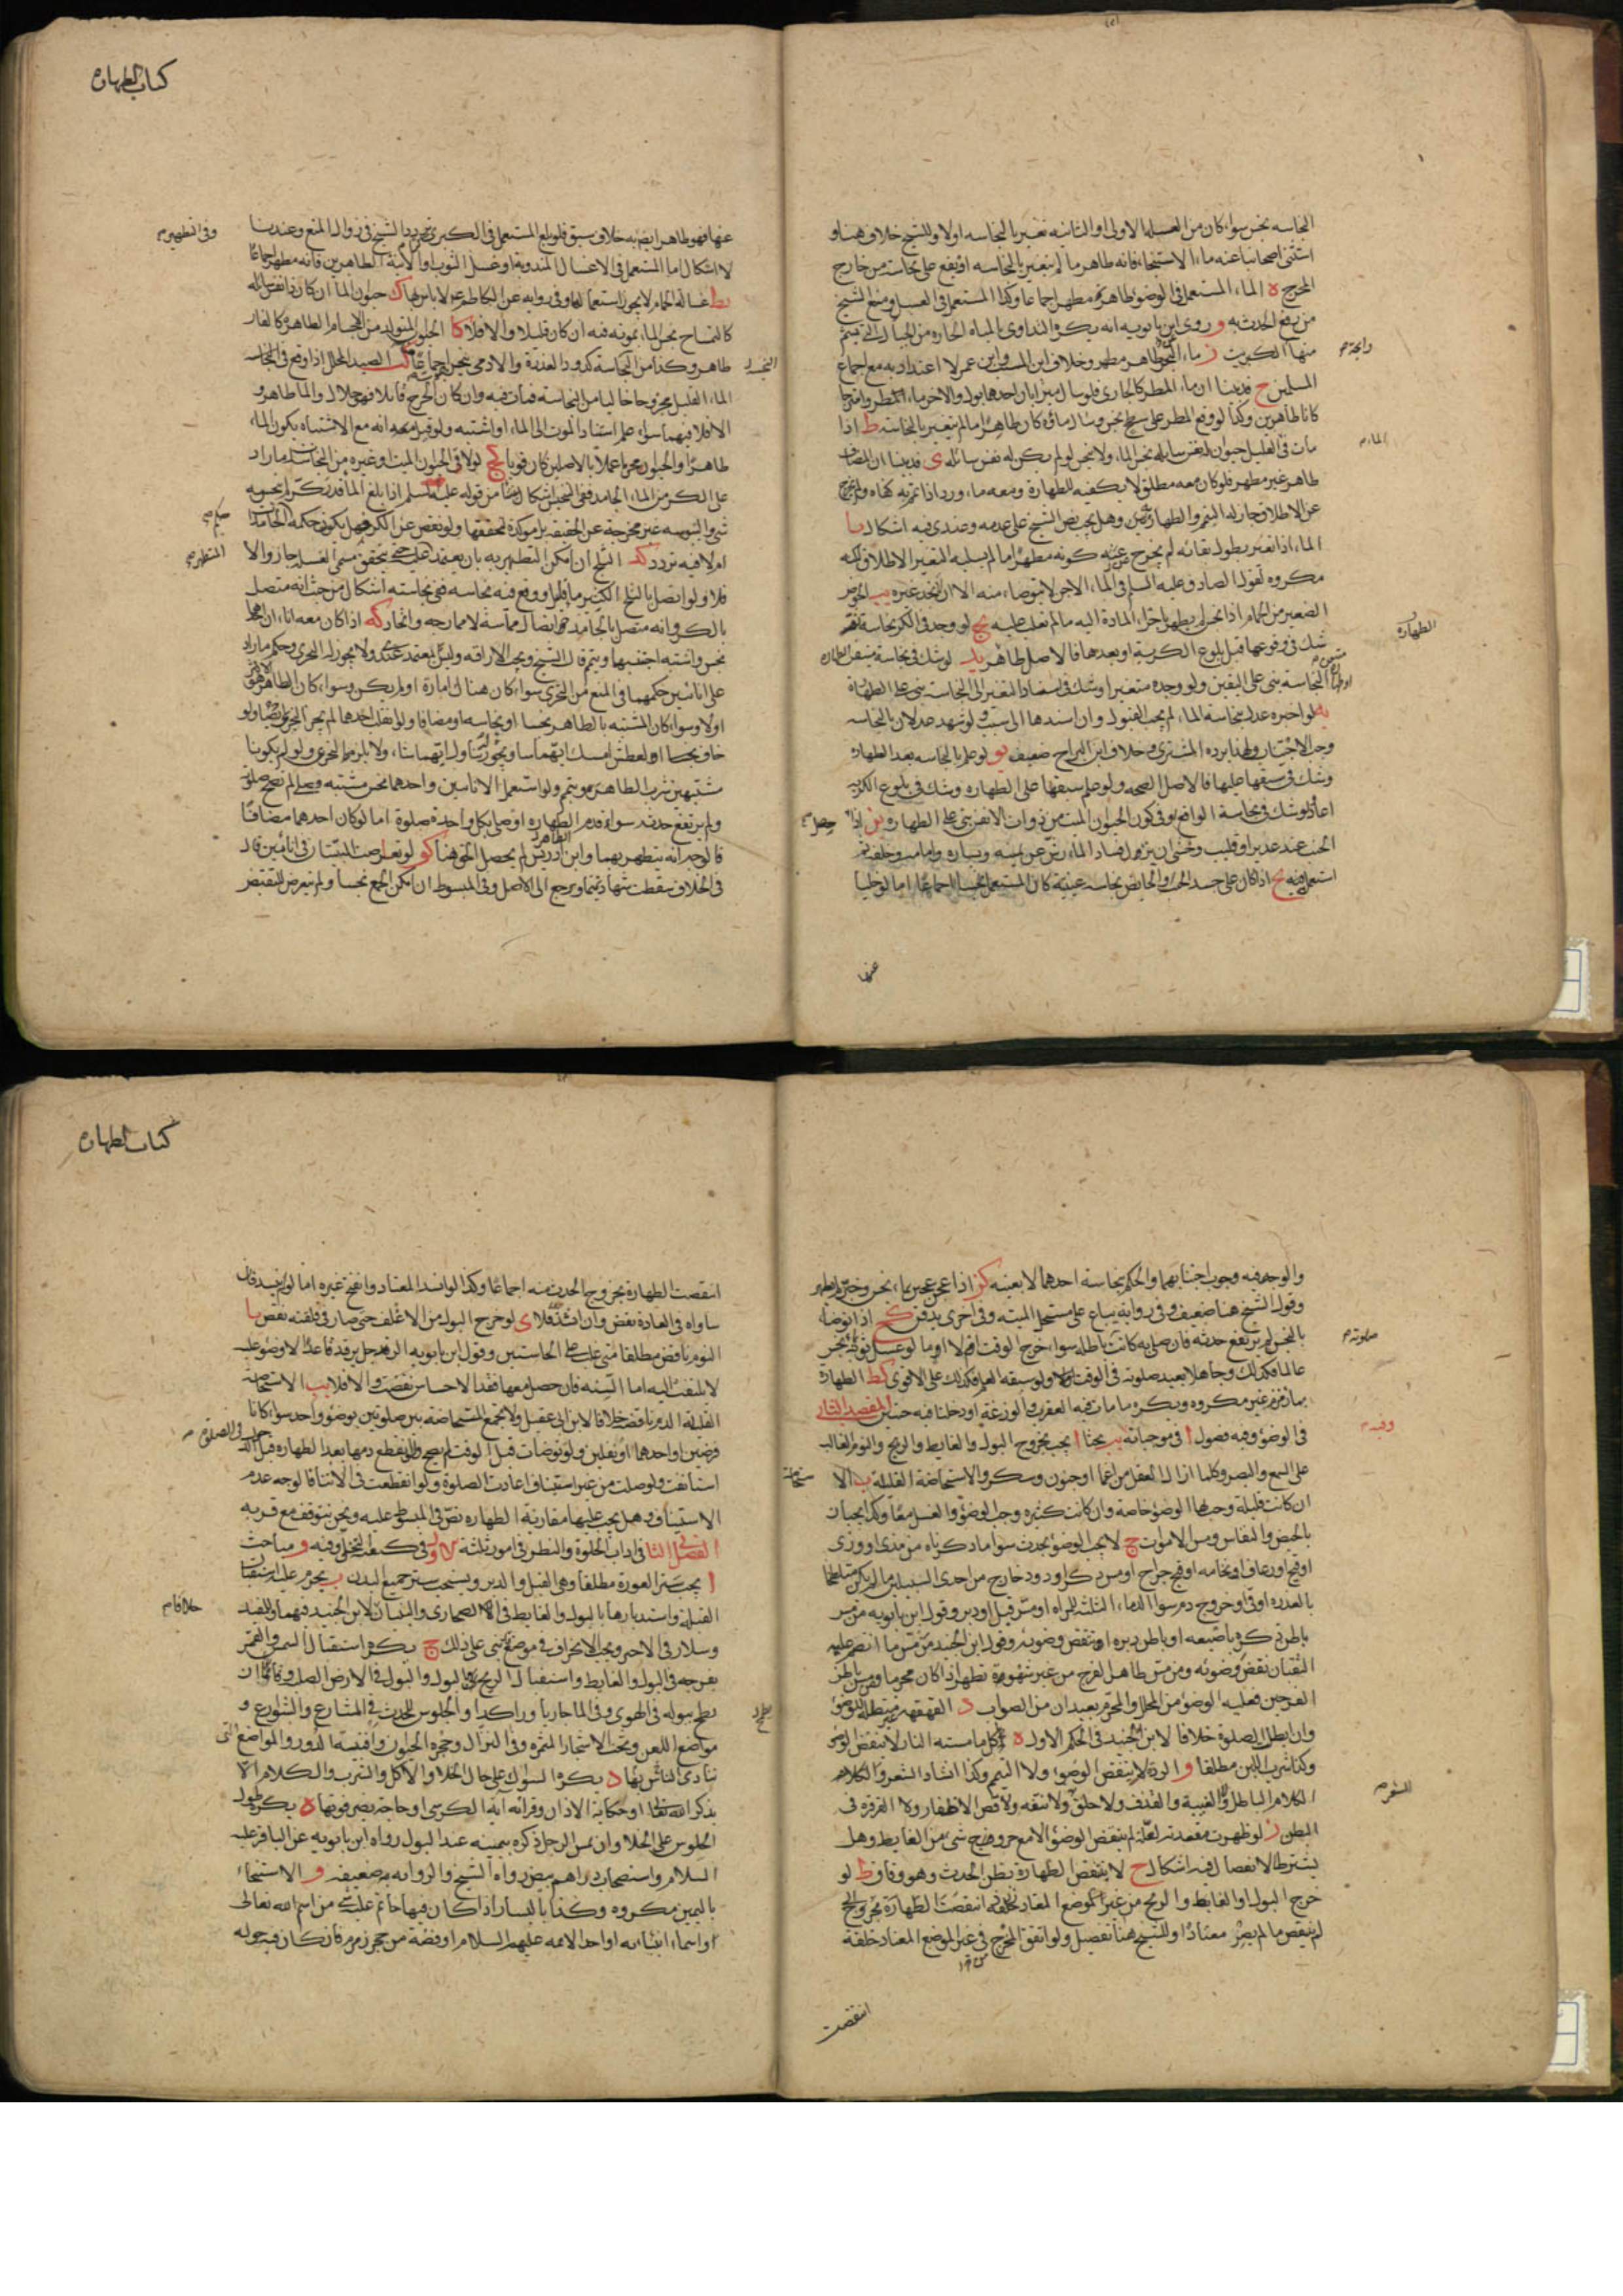 النجاسه نجس سواء كان من الغسله الاولى او الثانيه تغير بالنجاسه اولا وللشيخ خلاف هنا و
استثنى اصحابنا عنه ماء الاستنجاء فانه طاهر ما لم يتغير بالنجاسه او يقع على نجاسه من خارج
المخرج ه الماء المستعمل في الوضوء طاهر مطهر اجماعا وكذا المستعمل في الغسل ومنع الشيخ
من رفع الحدث به و روى ابن بابويه انه يكره التداوى بالمياه الحاره من الجبال التي يشم
منها الكبريت ز ماء البحر طاهر مطهر وخلاف ابن المسيب وابن عمر لا اعتداد به مع اجماع
رايحة
المسلمين ح قد بينا ان ماء المطر كالجارى فلو سال ميزابان احدهما بول والاخر ماء المطر وامتزجا
كانا طاهرين وكذا لو وقع المطر على سطح نجس وسال ماؤه كان طاهرا ما لم يتغير بالنجاسه ط اذا
مات في القليل حيوان له نفس سايله نجس الماء ولا ينجس لو لم يكن له نفس سائله ى قد بينا ان المضاف
الماء
طاهر غير مطهر فلو كان معه مطلق لا يكفيه للطهارة ومعه ماء ورد اذا تمم به كفاه ولم يخرج
عن الاطلاق جاز له التيمم والطهارة وهل يجب نص الشيخ على عدمه وعندى فيه اشكال يا
الماء اذا تغير بطول بقائه لم يخرج عن كونه مطهرا ما لم يسلبه التغير الاطلاق لكنه
مكروه لقول الصادق عليه السلم في الماء الاجن لا يتوضا منه الا ان لا تجد غيره يب الحوض
الصغير من الحمام اذا نجس لم يطهر باجراء المادة اليه ما لم تغلب عليه يج لو وجد في الكر نجاسة
الطهارة
شك في وقوعها قبل بلوغ الكرية او بعدها فالاصل طاهر يد لو شك في نجاسة متيقن الطهارة
النجاسة بنى على اليقين ولو وجده متغيرا وشك في استناد التغير الى النجاسة بنى على الطهارة
يه لو اخبره عدل بنجاسة الماء لم يجب القبول وان اسندها الى سبب ولو شهد عدلان بالنجاسه
وجب الاجتناب ولهذا يرده المشترى وخلاف ابن البراج ضعيف يو لو علم بالنجاسه بعد الطهاره
وشك في سبقها عليها فالاصل الصحه ولو علم سبقها على الطهاره وشك في بلوغ الكريه
اعاد ولو شك في نجاسة الواقع او في كون الحيوان الميت من ذوات الانفس بنى على الطهاره يز اذا
حصل
الجنب عند غدير او قليب وخشى ان ينزله فساد الماء رش عن يمينه ويساره وامامه وخلفه ثم
استعمل منه يح اذا كان على جسد الجنب والحايض نجاسه عينية كان المستعمل نجسا اجماعا اما لو خليا
عنها
كتاب الطهاره
عنها فهو طاهر ايضا به خلاف سبق فلو بلغ المستعمل في الكبرى كرا تردد الشيخ في زوال المنع وعندنا
وفي التطهير
لا اشكال اما المستعمل في الاغسال المندوبة او غسل الثوب والانية الطاهرين فانه مطهر اجماعا
يط غسالة الحمام لا يجوز استعمالها وفي رواية عن الكاظم ع لا باس بها ك حيوان الماء ان كان ذا نفس سائله
كالتمساح نجس الماء بموته فيه ان كان قليلا والا فلا كا الحيوان المتولد من الاجسام الطاهرة كالفار
طاهر وكذا من النجاسة كدود العذرة والادمى نجس اجماعا كب الصيد المحلل اذا وقع في
الماء القليل مجروحا خاليا من النجاسة فمات فيه وان كان الجرح قاتلا فهو حلال والماء طاهر و
الا فلا فيهما سواء علم استناد الموت الى الماء او اشتبه ولو قيل انه مع الاشتباه يكون الماء
طاهرا والحيوان محرما عملا بالاصلين كان قويا كج لو لاقى الحيوان الميت او غيره من النجاسات ما زاد
على الكر من الماء الجامد ففى التنجيس اشكال ينشا من قوله عليه السلم اذا بلغ الماء قدر كر لم ينجسه
شىء واليبوسه غير مخرجة عن الحقيقه بل موكدة لتحققها ولو نقص عن الكر فهل يكون حكمه الجامدات
ام لا فيه تردد كد الثلج ان امكن التطهير به بان يعتمد عليه حتى يتحقق مسمى الغسل جاز والا
فلا ولو اتصل بالثلج الكثير ماء قليل ووقع فيه نجاسه ففى نجاسته اشكال من حيث انه متصل
بالكر وانه متصل بالجامد اتصال مماسة لا ممازجه واتحاد كه اذا كان معه اناءان احدهما
نجس واشتبه اجتنبهما وتيمم قال الشيخ ويجب الاراقه وليس بمعتمد عندى ولا يجوز له التحرى وحكم ما زاد
على انائين حكمهما في المنع من التحرى سواء كان هناك امارة او لم يكن وسواء كان الطاهر هو الاكثر
اولا وسواء كان المشتبه بالطاهر نجسا او نجاسه او مضافا ولو انقلب احدهما لم يجز التحرى ايضا ولو
خاف نجسا او العطش امسك ايهما شاء ويجوز شرب ايهما شاء ولا يلزمه التحرى ولو لم يكونا
مشتبهين شرب الطاهر وتيمم ولو استعمل الانائين واحدهما نجس مشتبه وصلى لم تصح صلوته
ولم يرتفع حدثه سواء قدم الطهاره او صلى بكل واحدة صلوة اما لو كان احدهما مضافا
فالوجه انه يتطهر بهما وابن ادريس لم يحصل الحق هنا كو لو تعارضت البينتان في انائين قال
في الخلاف سقطت شهادتهما ويرجع الى الاصل وفي المبسوط ان امكن الجمع نجسا ولم يتعرض للنقيض
والوجه فيه وجوب اجتنابهما والحكم بنجاسة احدهما لا بعينه كز اذا عجن عجين بماء نجس وخبز لم يطهر
وقول الشيخ هنا ضعيف وفي رواية يباع على مستحل الميته وفي اخرى يدفن كح اذا توضا
بالنجس لم يرتفع حدثه فان صلى به كانت باطله سواء خرج الوقت ام لا اما لو غسل ثوبه بنجس
صلوته
عالما فكذلك وجاهلا يعيد صلوته في الوقت ولو سبقه العلم فكذلك على الاقوى كط الطهارة
بماء زمزم غير مكروه ويكره ما مات فيه العقرب والوزغة او دخلتا فيه حيتان المقصد الثانى
وفيه
في الوضوء وفيه فصول ا في موجباته يب بحثا ا يجب بخروج البول والغايط والريح والنوم الغالب
على السمع والبصر وكلما ازال العقل من اغماء او جنون وسكر والاستحاضة القليلة ب
ان كانت قليلة وجب لها الوضوء خاصة وان كانت كثيره وجب الوضوء والغسل معا وكذا يجبان
بالحيض والنفاس ومس الاموات ج لا يجب الوضوء بحدث سوا ما ذكرناه من مذى او وذى
او قيح او رعاف او نخامه او فتح جراح او مس ذكر او دود خارج من احدى السبيلين ما لم يكن متلطخا
بالعذره او قىء او خروج دم سوا الدماء الثلثه للمراه او مس قبل او دبر وقول ابن بابويه من مس
باطن ذكره باصبعه او باطن دبره انتقض وضوئه وقول ابن الجنيد من مس ما انضم عليه
الثقبان نقض وضوئه ومن مس ظاهر الفرج من غير بشهوة تطهر اذا كان محرما ومن مس باطن
الفرجين فعليه الوضوء من المحلل والمحرم بعيدان من الصواب د القهقهة لا تبطل الوضوء
وان ابطلت الصلوة خلافا لابن الجنيد في الحكم الاول ه اكل ما مسته النار لا ينقض الوضوء
وكذا شرب اللبن مطلقا و الردة لا تنقض الوضوء ولا التيمم وكذا انشاد الشعر والكلام
الشعر
الكلام الباطل والغيبة والقذف ولا حلق ولا نتفه ولا قص الاظفار ولا القرقره في
البطن ز لو ظهرت مقعدته لعلة لم ينقض الوضوء الا مع خروج شىء من الغايط وهل
يشترط الانفصال فيه اشكال ح لا ينقض الطهاره بظن الحدث وهو وفاق ط لو
خرج البول او الغايط والريح من غير الموضع المعتاد انتقضت الطهارة بخروج
لم ينقض ما لم يصر معتادا وللشيخ هنا تفصيل ولو اتفق المخرج في غير الموضع المعتاد خلقة
انتقضت
كتاب الطهاره
انتقضت الطهارة بخروج الحدث منه اجماعا وكذا لو انسد المعتاد وانفتح غيره اما لو لم ينسد فان
ساواه في العادة نقض وان شذ فلا ى لو خرج البول من الاغلف حتى صار في قلفته نقض يا
النوم ناقض مطلقا متى غلب على الحاستين وقول ابن بابويه الرجل يرقد قاعدا لا وضوء عليه
لا يلتفت اليه اما السنه فان حصل معها فقد الاحساس نقضت والا فلا يب الاستحاضة
القليلة الدم ناقضه خلافا لابن ابى عقيل ولا تجمع المستحاضة بين صلوتين بوضوء واحد سواء كانا
فرضين او احدهما او نفلين ولو توضات قبل الوقت لم يصح ولو انقطع دمها بعد الطهاره قبل
استانفت ولو صلت من غير استيناف اعادت الصلوة ولو انقطعت في الاثناء فالوجه عدم
الاستيناف وهل يجب عليها مقارنة الطهاره نص في المبسوط عليه ونحن نتوقف مع قربه
الفصل الثانى في اداب الخلوة والنظر في امور ثلثه الاول في كيفية التخلى وفيه و مباحث
ا يجب ستر العورة مطلقا وهى القبل والدبر ويستحب ستر جميع البدن ب يحرم عليه استقبال
القبلة واستدبارها بالبول والغايط في الصحارى والبنيان خلافا لابن الجنيد فيهما وللمفيد
خلافا
وسلار في الاخير ويجب الانحراف في موضع بنى على ذلك ج يكره استقبال الشمس والقمر
بفرجه في البول والغايط واستقبال الريح بالبول والبول في الارض الصلبه وقائما وان
يطمح ببوله في الهوى وفي الماء جاريا وراكدا والجلوس للحدث في المشارع والشوارع و
مواضع اللعن وتحت الاشجار المثمره وفي النزال وجحرة الحيوان وافنية الدور والمواضع التى
تتاذى الناس بها د يكره السواك على حال الخلاء والاكل والشرب والكلام الا
بذكر الله تعالى او حكاية الاذان وقراءة آية الكرسى او حاجة يضر فوتها ه يكره طول
الجلوس على الخلاء وان يمس الرجل ذكره بيمينه عند البول رواه ابن بابويه عن الباقر عليه
السلام واستصحاب دراهم بيض رواه الشيخ والروايه ضعيفه و الاستنجاء
باليمين مكروه وكذا باليسار اذا كان فيها خاتم عليه شىء من اسم الله تعالى
او اسماء انبيائه او احد الائمه عليهم السلام او فصه من حجر زمزم فان كان فيه حوله